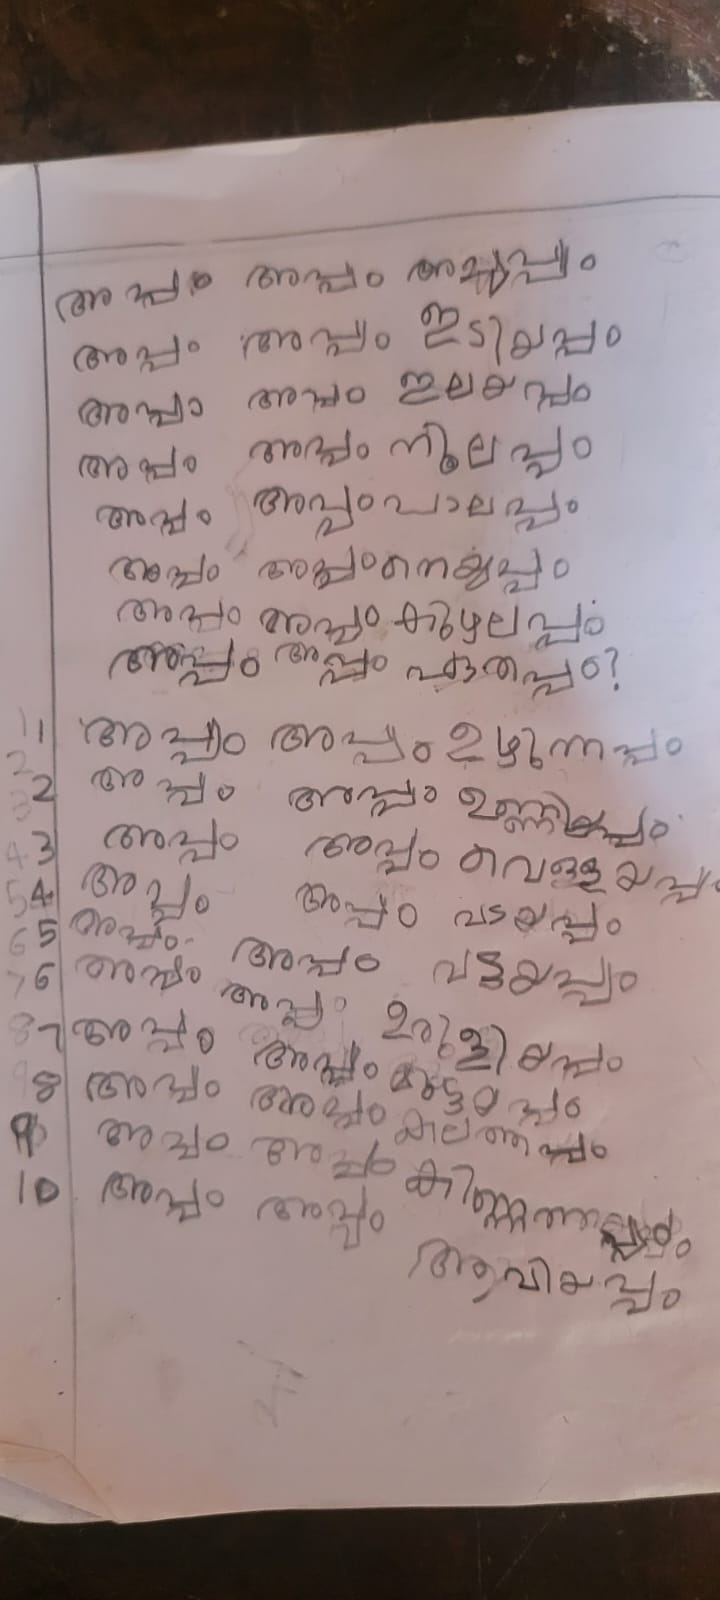 അപ്പം അപ്പം അച്ചപ്പം
അപ്പം അപ്പം ഇടിയപ്പം
അപ്പം അപ്പം ഇലയപ്പം
അപ്പം അപ്പം നൂലപ്പം
അപ്പം അപ്പം പാലപ്പം
അപ്പം അപ്പം നെയ്യപ്പം
അപ്പം അപ്പം കുഴലപ്പം
അപ്പം അപ്പം ഏതപ്പം?
1 അപ്പം അപ്പം ഉഴുന്നപ്പം
2 അപ്പം അപ്പം ഉണ്ണിയപ്പം
3 അപ്പം അപ്പം വെള്ളയപ്പം
4 അപ്പം അപ്പം വടയപ്പം
5 അപ്പം അപ്പം വട്ടയപ്പം
6 അപ്പം അപ്പം ഉരുളിയപ്പം
7 അപ്പം അപ്പം മുട്ടയപ്പം
8 അപ്പം അപ്പം കലത്തപ്പം
9 അപ്പം അപ്പം കിണ്ണത്തപ്പം
10 അപ്പം അപ്പം ആവിയപ്പം